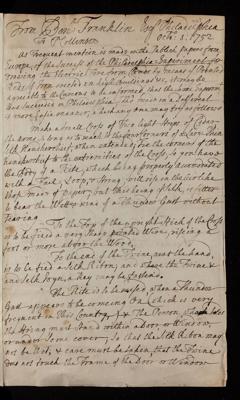 From Benn. Franklin Esq Philadelphia
To P Collinson Octo. 1. 1752
As frequent mention is made in the Publick Papers from
Europe, of the Success of the Philadelphia Experiment for
drawing the Electric Fire from Clouds by means of Pointed
Rods of Iron erected on high Buildings &c, it may be
agreeable to the Curious to be informed, that the same Experiment
has succeeded in Philadelphia, tho made in a different &
more easie manner, which any one may try as follows
Make a small Cross of two light Strips of Cedar
the arms so long as to reach to the four corners of a large thin
Silk Handkerchief when extended, tie the corners of the
handkerchief to the extremities of the Cross, so you have
the Body of a Kite, which being properly accommodated
with a Tail, Loop, & String, will rise in the Air like
those made of Paper, but this being of Silk, is fitter
to bear the Wet & Wind of a Thunder Gust without
tearing
To the Top of the upright Stick of the Cross
is to be fixed a very sharp pointed Wire, rising a
foot or more above the Wood.
To the end of the Twine, next the hand,
is to be tied a Silk Ribon, and where the Twine &
the Silk joyn, a Key may be fastend.
The Kite is to be raised, when a Thunder
Gust appears to be coming On (which is very
frequent in this Country) & the Person who holds
the String must stand within a door, or Window,
or under some cover, so that the Silk Ribon may
not be Wet, & care must be taken, that the Twine
does not touch the Frame of the Door or Window